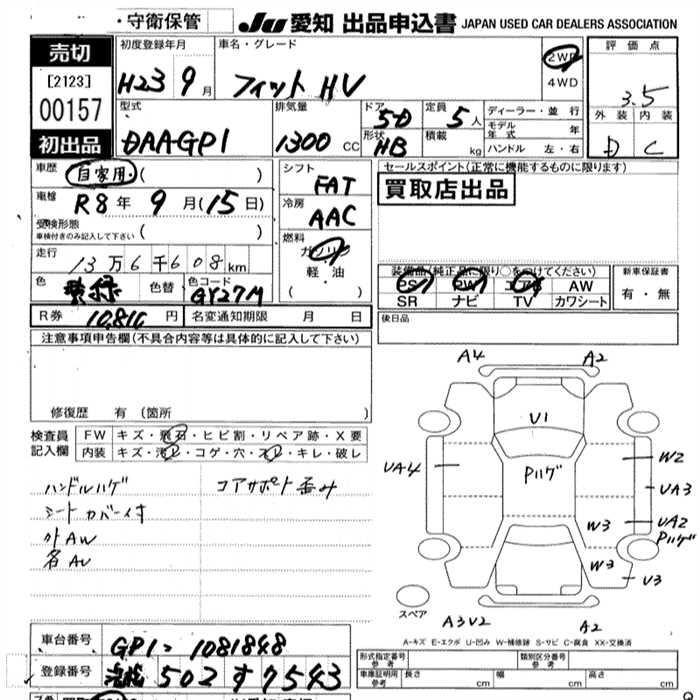 ・守衛保管
Ju 愛知 出品申込書 JAPAN USED CAR DEALERS ASSOCIATION
売切
[2123]
00157
初出品
初度登録年月
H23 9月
車名・グレード
フィット HV
2WD
4WD
評価点
3.5
外装 内装
D C
型式
DAAGP1
排気量
1300 CC
ドア
5D
形状
HB
定員
5人
積載
kg
ディーラー・並行
モデル年式 年
ハンドル 左・右
車歴
自家用・( )
車検
R8年 9月(15日)
受検形態
車検付きのみ記入して下さい ( )
走行
13万6千608km
色
緑
色替
色コード
GY27M
シフト
FAT
冷房
AAC
燃料
ガソリン
軽・油
( )
セールスポイント(正常に機能するものに限ります)
買取店出品
装備品(純正品に限り○をつけてください)
PS PW エアB AW
SR ナビ TV カワシート
新車保証書
有・無
R券 10,810 円 名変通知期限 月 日
後日品
注意事項申告欄(不具合内容等は具体的に記入して下さい)
修復歴 有(箇所 )
検査員
記入欄
FW キズ・飛石・ヒビ割・リペア跡・X要
内装 キズ・汚レ・コゲ・穴・スレ・キレ・破レ
ハンドルハゲ
シートカバー付
外AW
コアサポート歪み
A4 A2
U1
UA4
Pハゲ
W2
UA3
W3
UA2
Pハゲ
W3
U3
スペア
A3U2
A2
A-キズ E-エクボ U-凹み W-補修跡 S-サビ C-腐食 XX-交換済
車台番号
GP1-1081848
登録番号
502 す 7543
形式指定番号
参考
類別区分番号
参考
車庫証明用
参考
長さ cm 幅 cm 高さ cm